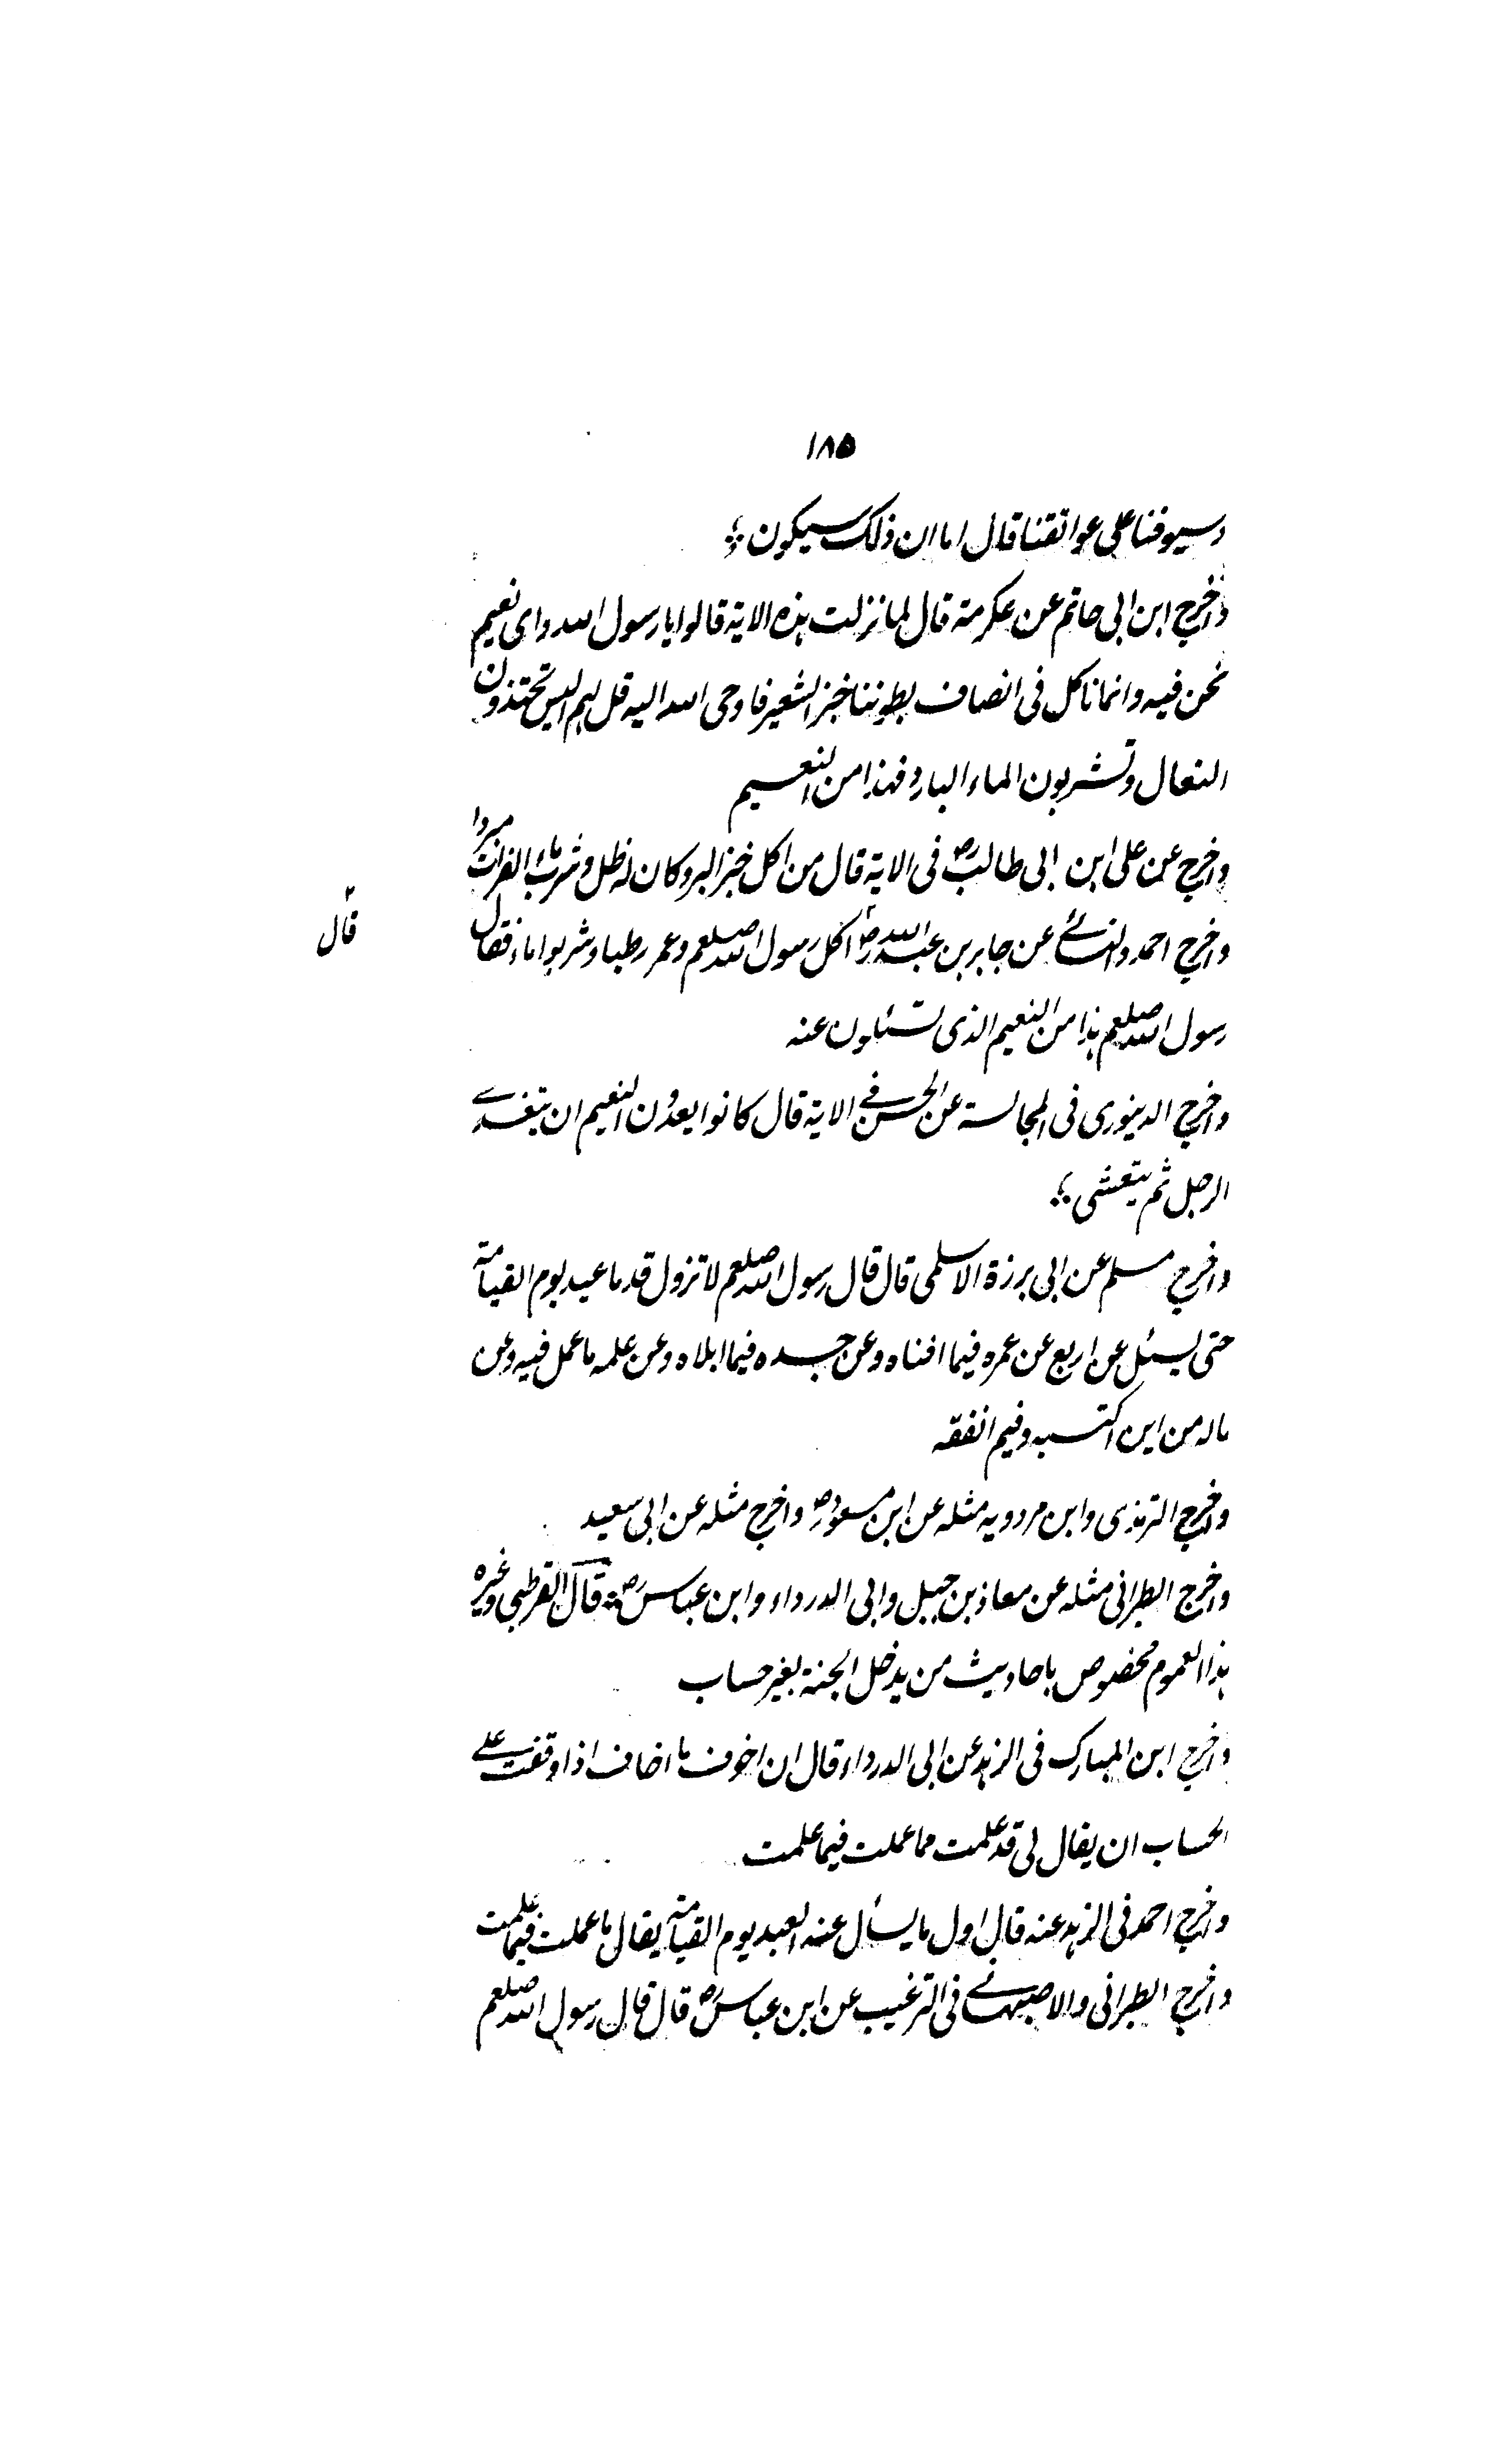 ١٨٥
وسيوفنا على عواتقنا قال اما ان ذلك سيكون
واخرج ابن ابى حاتم عن عكرمة قال لما نزلت هذه الاية قالوا يا رسول الله واى نعيم
نحن فيه وانما ناكل فى انصاف بطوننا خبز الشعير فاوحى الله اليه قل لهم اليس تحتذون
النعال وتشربون الماء البارد فهذا من النعيم
واخرج عن على ابن ابى طالب رض فى الاية قال من اكل خبز البر وكان له ظل وشرب ماء الفرات مبردا
واخرج احمد والنسائے عن جابر بن عبد الله رض اكل رسول الله صلعم وعمر رطبا وشربوا ماء فقال
قال
رسول الله صلعم هذا من النعيم الذى تسئلون عنه
واخرج الدينورى فى المجالسة عن الحسن فے الاية قال كانوا يعدون النعيم ان يتغدے
الرجل ثم يتعشى
واخرج مسلم عن ابى برزة الاسلمى قال قال رسول الله صلعم لا تزول قدما عبد يوم القيامة
حتى يسئل عن اربع عن عمره فيما افناه وعن جسده فيما ابلاه وعن علمه ما عمل فيه وعن
ماله من اين اكتسبه وفيم انفقه
واخرج الترمذى وابن مردويه مثله عن ابن مسعود رض واخرج مثله عن ابى سعيد
واخرج الطبرانى مثله عن معاذ بن جبل وابى الدرداء وابن عباس رض قال القرطبى وغيره
هذا العموم مخصوص باحاديث من يدخل الجنة بغير حساب
واخرج ابن المبارك فى الزهد عن ابى الدرداء قال ان اخوف ما اخاف اذا وقفت علے
الحساب ان يقال لى قد علمت مما عملت فيما علمت
واخرج احمد فى الزهد عنه قال اول ما يسأل عنه العبد يوم القيامة يقال ما عملت فيما علمت
واخرج الطبرانى والاصبهانے فى الترغيب عن ابن عباس رض قال قال رسول الله صلعم